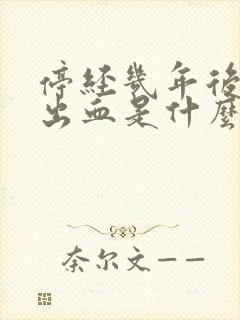 停經幾年後
出血是什麼
奈尔文——